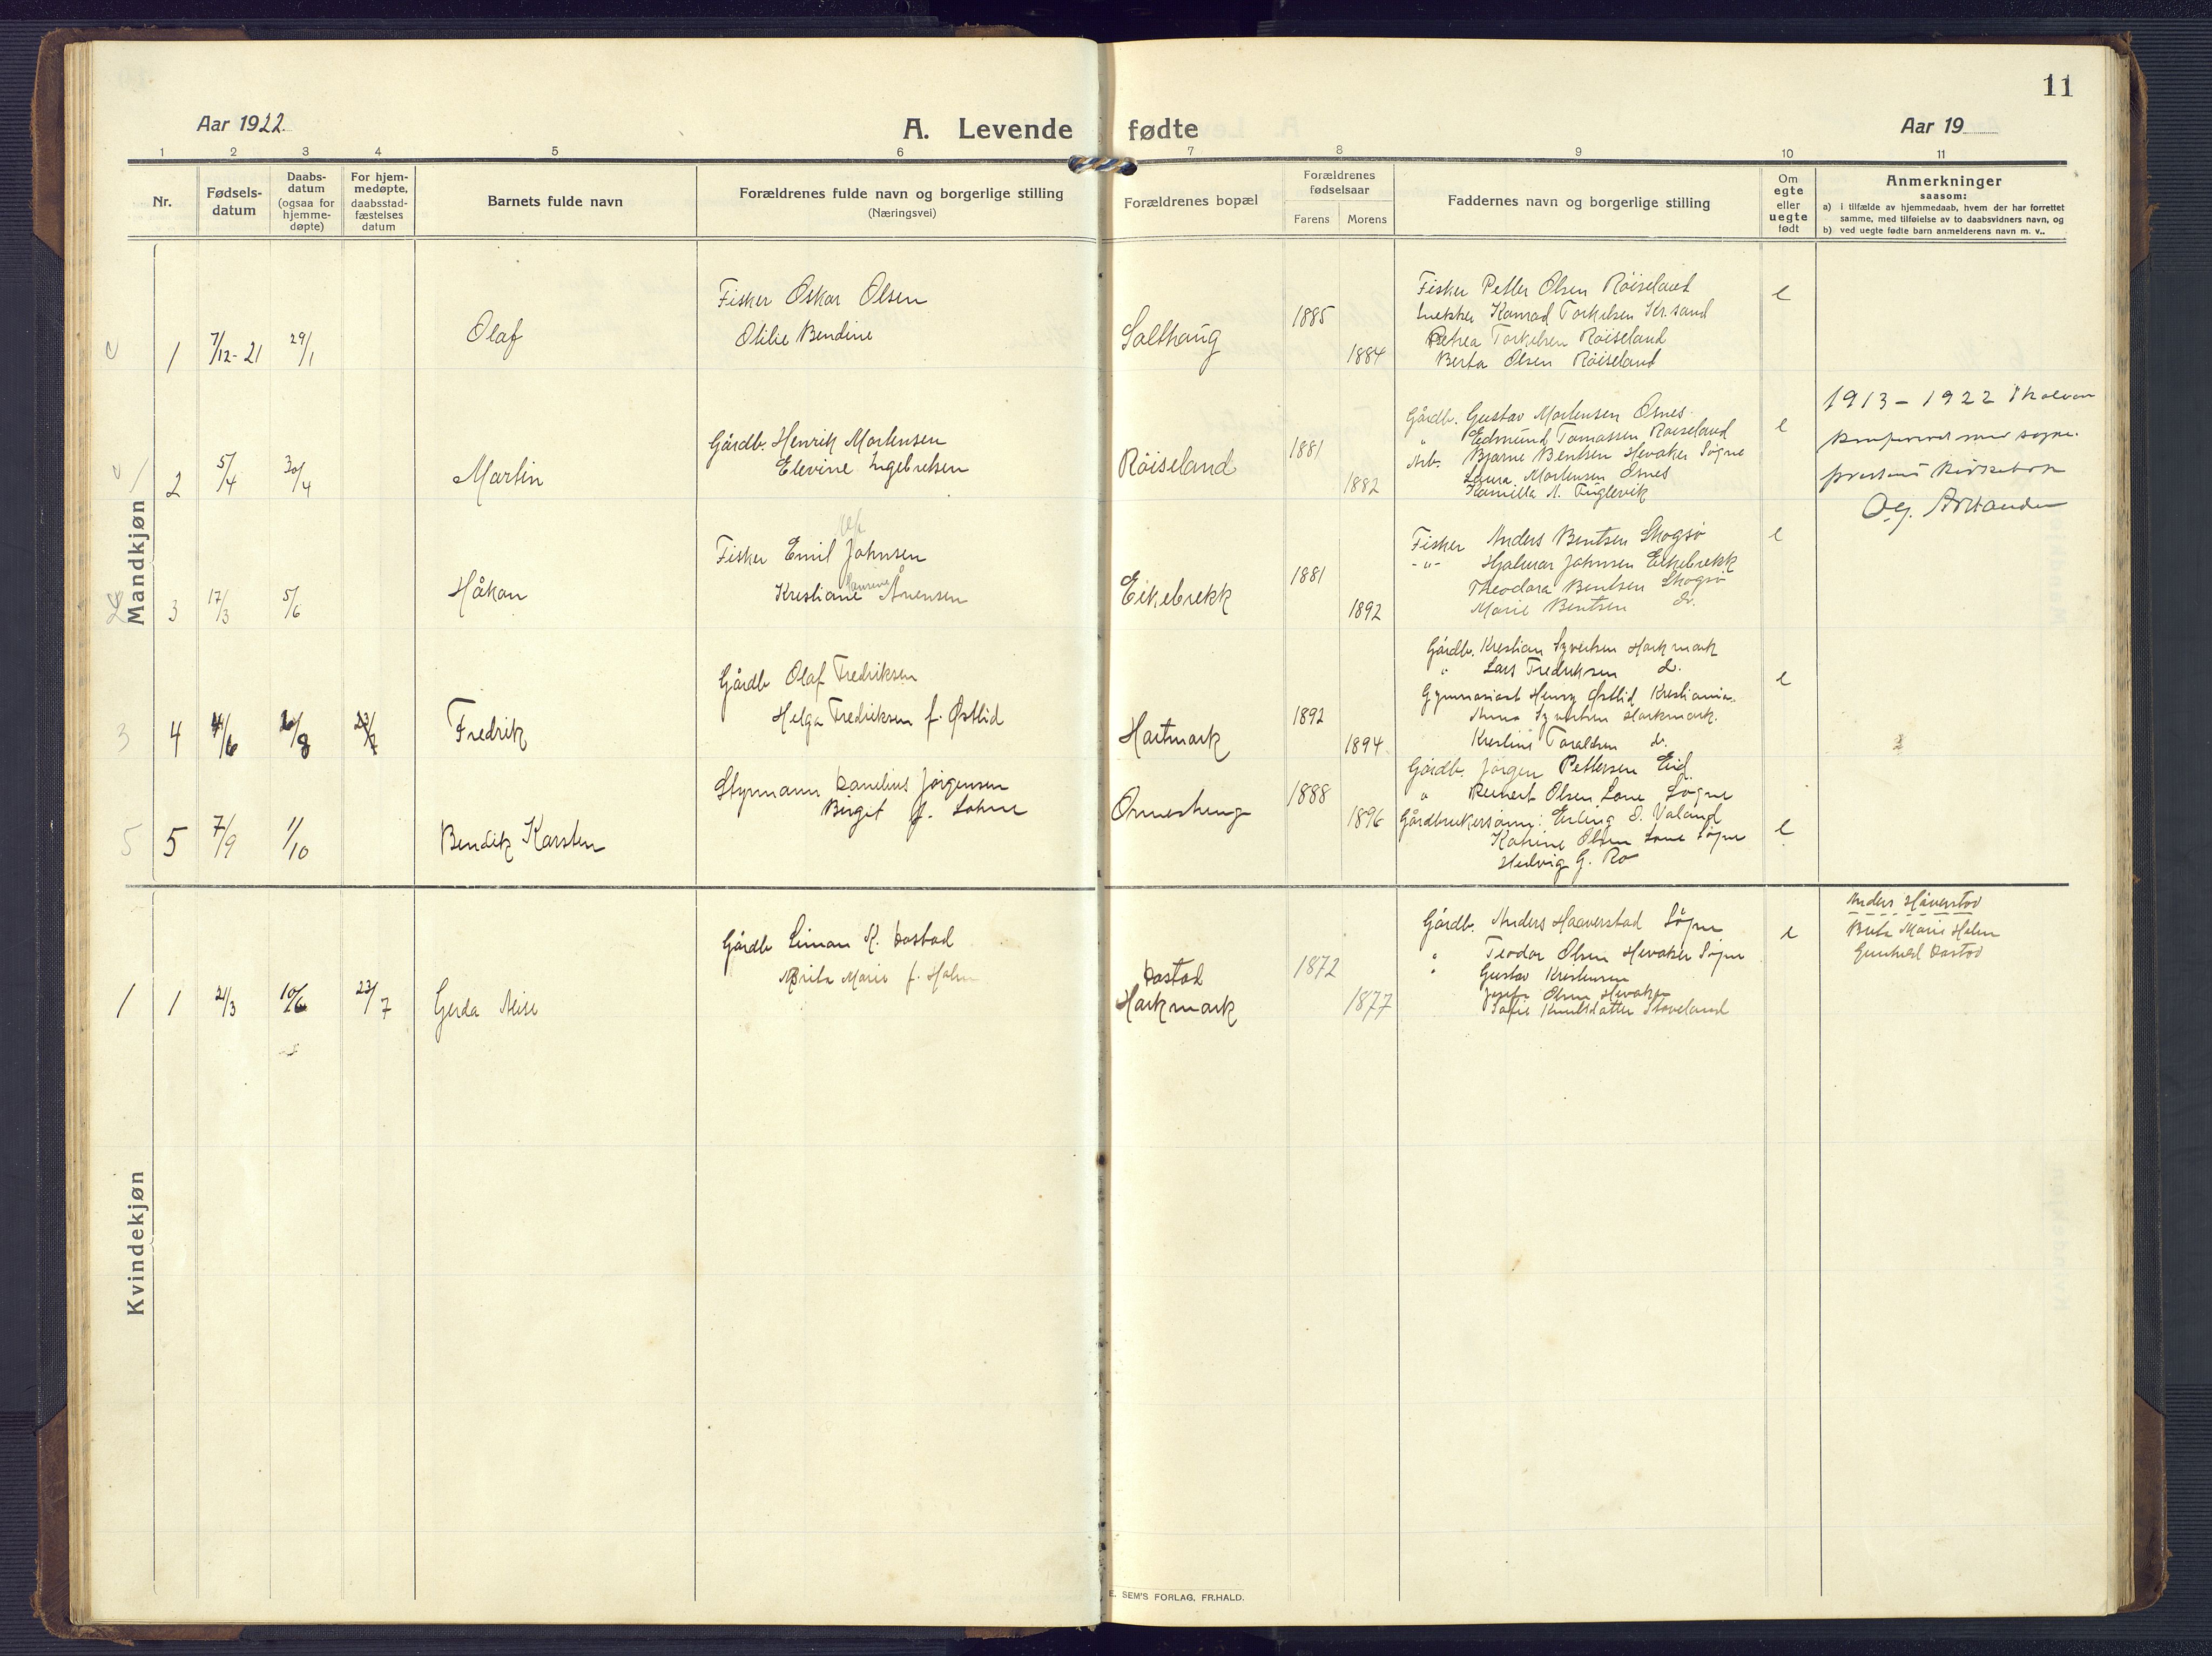 11
Aar 1922.
A. Levende fødte
Aar 19
1 2 3 4 5 6 7 8 9 10 11
Nr.
Fødsels-
datum
Daabs-
datum
(ogsaa for
hjemme-
døpte)
For hjem-
medøpte,
daabsstad-
fæstelses
datum
Barnets fulde navn
Forældrenes fulde navn og borgerlige stilling
(Næringsvei)
Forældrenes bopæl
Forældrenes
fødselsaar
Farens Morens
Faddernes navn og borgerlige stilling
Om
egte
eller
uegte
født
Anmerkninger
saasom:
a) i tilfælde av hjemmedaab, hvem der har forrettet
samme, med tilføielse av to daabsvidners navn, og
b) ved uegte fødte barn anmelderens navn m. v..
Mandkjøn
1 7/12-21 29/1 Olaf
Fisker Oskar Olsen
Otilie Bendine
Salthaug 1885
1884
Fisker Petter Olsen Röiseland
Konrad Torkelsen Kr.sand
Petrea Torkelsen Röiseland
Berta Olsen Röiseland
e
2 5/4 30/4 Martin
Gårdb. Henrik Mortensen
Elevine Ingebretsen
Röiseland 1881
1882
Gårdb. Gustav Mortensen Osnes
" Edmund Tomassen Röiseland
Arb. Bjarne Bentsen Hevaker Søgne
Laura Mortensen Osnes
Kamilla N. Fuglevik
e
1913 - 1922
3 17/3 5/6 Håkan
Fisker Emil Johnsen
Kristiane Laurine Ånensen
Eikebrekk 1881
1892
Fisker Anders Bentsen Skogsø
-"- Hjalmar Johnsen Eikebrekk
Theodora Bentsen Skogsø
Marie Bentsen do.
e
3 4 Fredrik
Gårdb Olaf Fredriksen
Helga Fredriksen f. Østlid
Hartmark 1892
1894
Gårdb. Kristian Syvertsen Harkmark
" Lars Fredriksen d.
Gymnasiast Henry Østlid Kristiania.
Anna Syvertsen Harkmark.
Taraldsen d.
e
5 5 7/9 1/10 Bendik Karsten
Styrmann Danelius Jörgensen
Birgit f. Lohne
1888
1896
Gårdb. Jörgen Pettersen Eid.
" Reinert Olsen Lone Søgne
Gårdbrukersönn: Erling O. Valand
Katrine Olsen Lone Søgne
Hedvig G. Ro
e
Kvindekjøn
1 1 21/3 10/6 23/7 Gerda Alise
Gårdb Simon K. Dastad
Marie f. Holm
Dastad
Harkmark
1872
1877
Gårdb. Anders Haaverstad Søgne
" Teodor Olsen Hevaker Søgne
" Gustav Kristensen
Olsen Hevaker
Sofie Knutsdatter Stoveland
e
Anders Håverstad
Marie Holm
Gunhild Dastad
E. SEM'S FORLAG, FR.HALD.